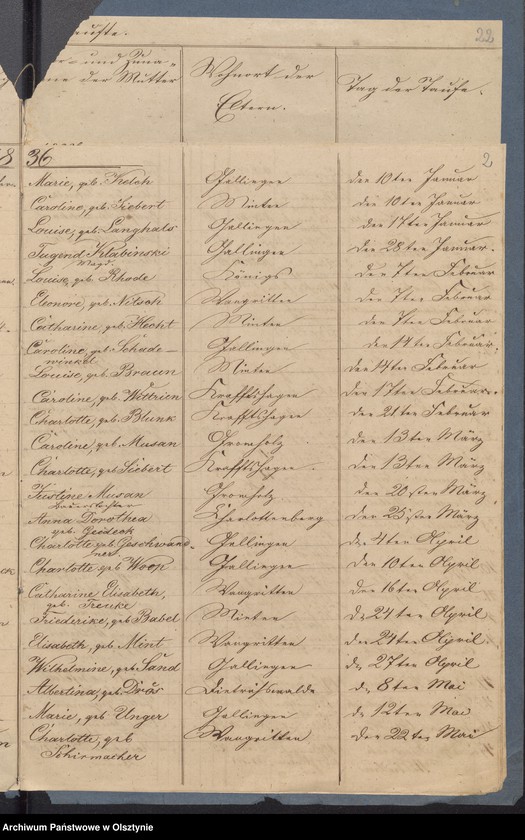 22
Wohnort der
Eltern.
Tag der Taufe.
der Mutter
36
2
Marie, geb. Kelch Gallingen den 10ten Januar
Caroline, geb. Siebert Minten den 10ten Januar
Louise, geb. Langhals Gallingen den 17ten Januar
Tugend Klabinski Gallingen den 28ten Januar.
Magd
Louise, geb. Rhode Königs den 7ten Februar
Eleonore, geb. Nitsch Wangritten den 7ten Februar
Catharine, geb. Hecht Minten den 7ten Februar
Caroline, geb. Schade- Gallingen den 14ten Februar.
winkel
Louise, geb. Braun Minten den 14ten Februar
Caroline, geb. Wettrien Krafftshagen den 17ten Februar.
Charlotte, geb. Blunk Krafftshagen den 21ten Februar
Caroline, geb. Musan Gromholz den 13ten März
Charlotte, geb. Siebert Krafftshagen. den 13ten März
Justine Musan Gromholz den 20sten März
Anna Dorothea Charlottenberg den 25sten März
geb. Geideck
Charlotte, geb. Geschwand- Gallingen den 4ten April
ner
Charlotte, geb. Woop Gallingen den 10ten April
Catharine Elisabeth, Wangritten den 16ten April
geb. Frenke
Friederike, geb. Babel Minten d. 24ten April
Elisabeth, geb. Mint Wangritten den 24ten April.
Wilhelmine, geb. Sand Gallingen d. 27ten April
Albertina, geb. Dräs Dietrichswalde d. 8ten Mai
Marie, geb Unger Gallingen d. 12ten Mai
Charlotte, geb Wangritten den 22ten Mai
Schirmacher
Archiwum Państwowe w Olsztynie